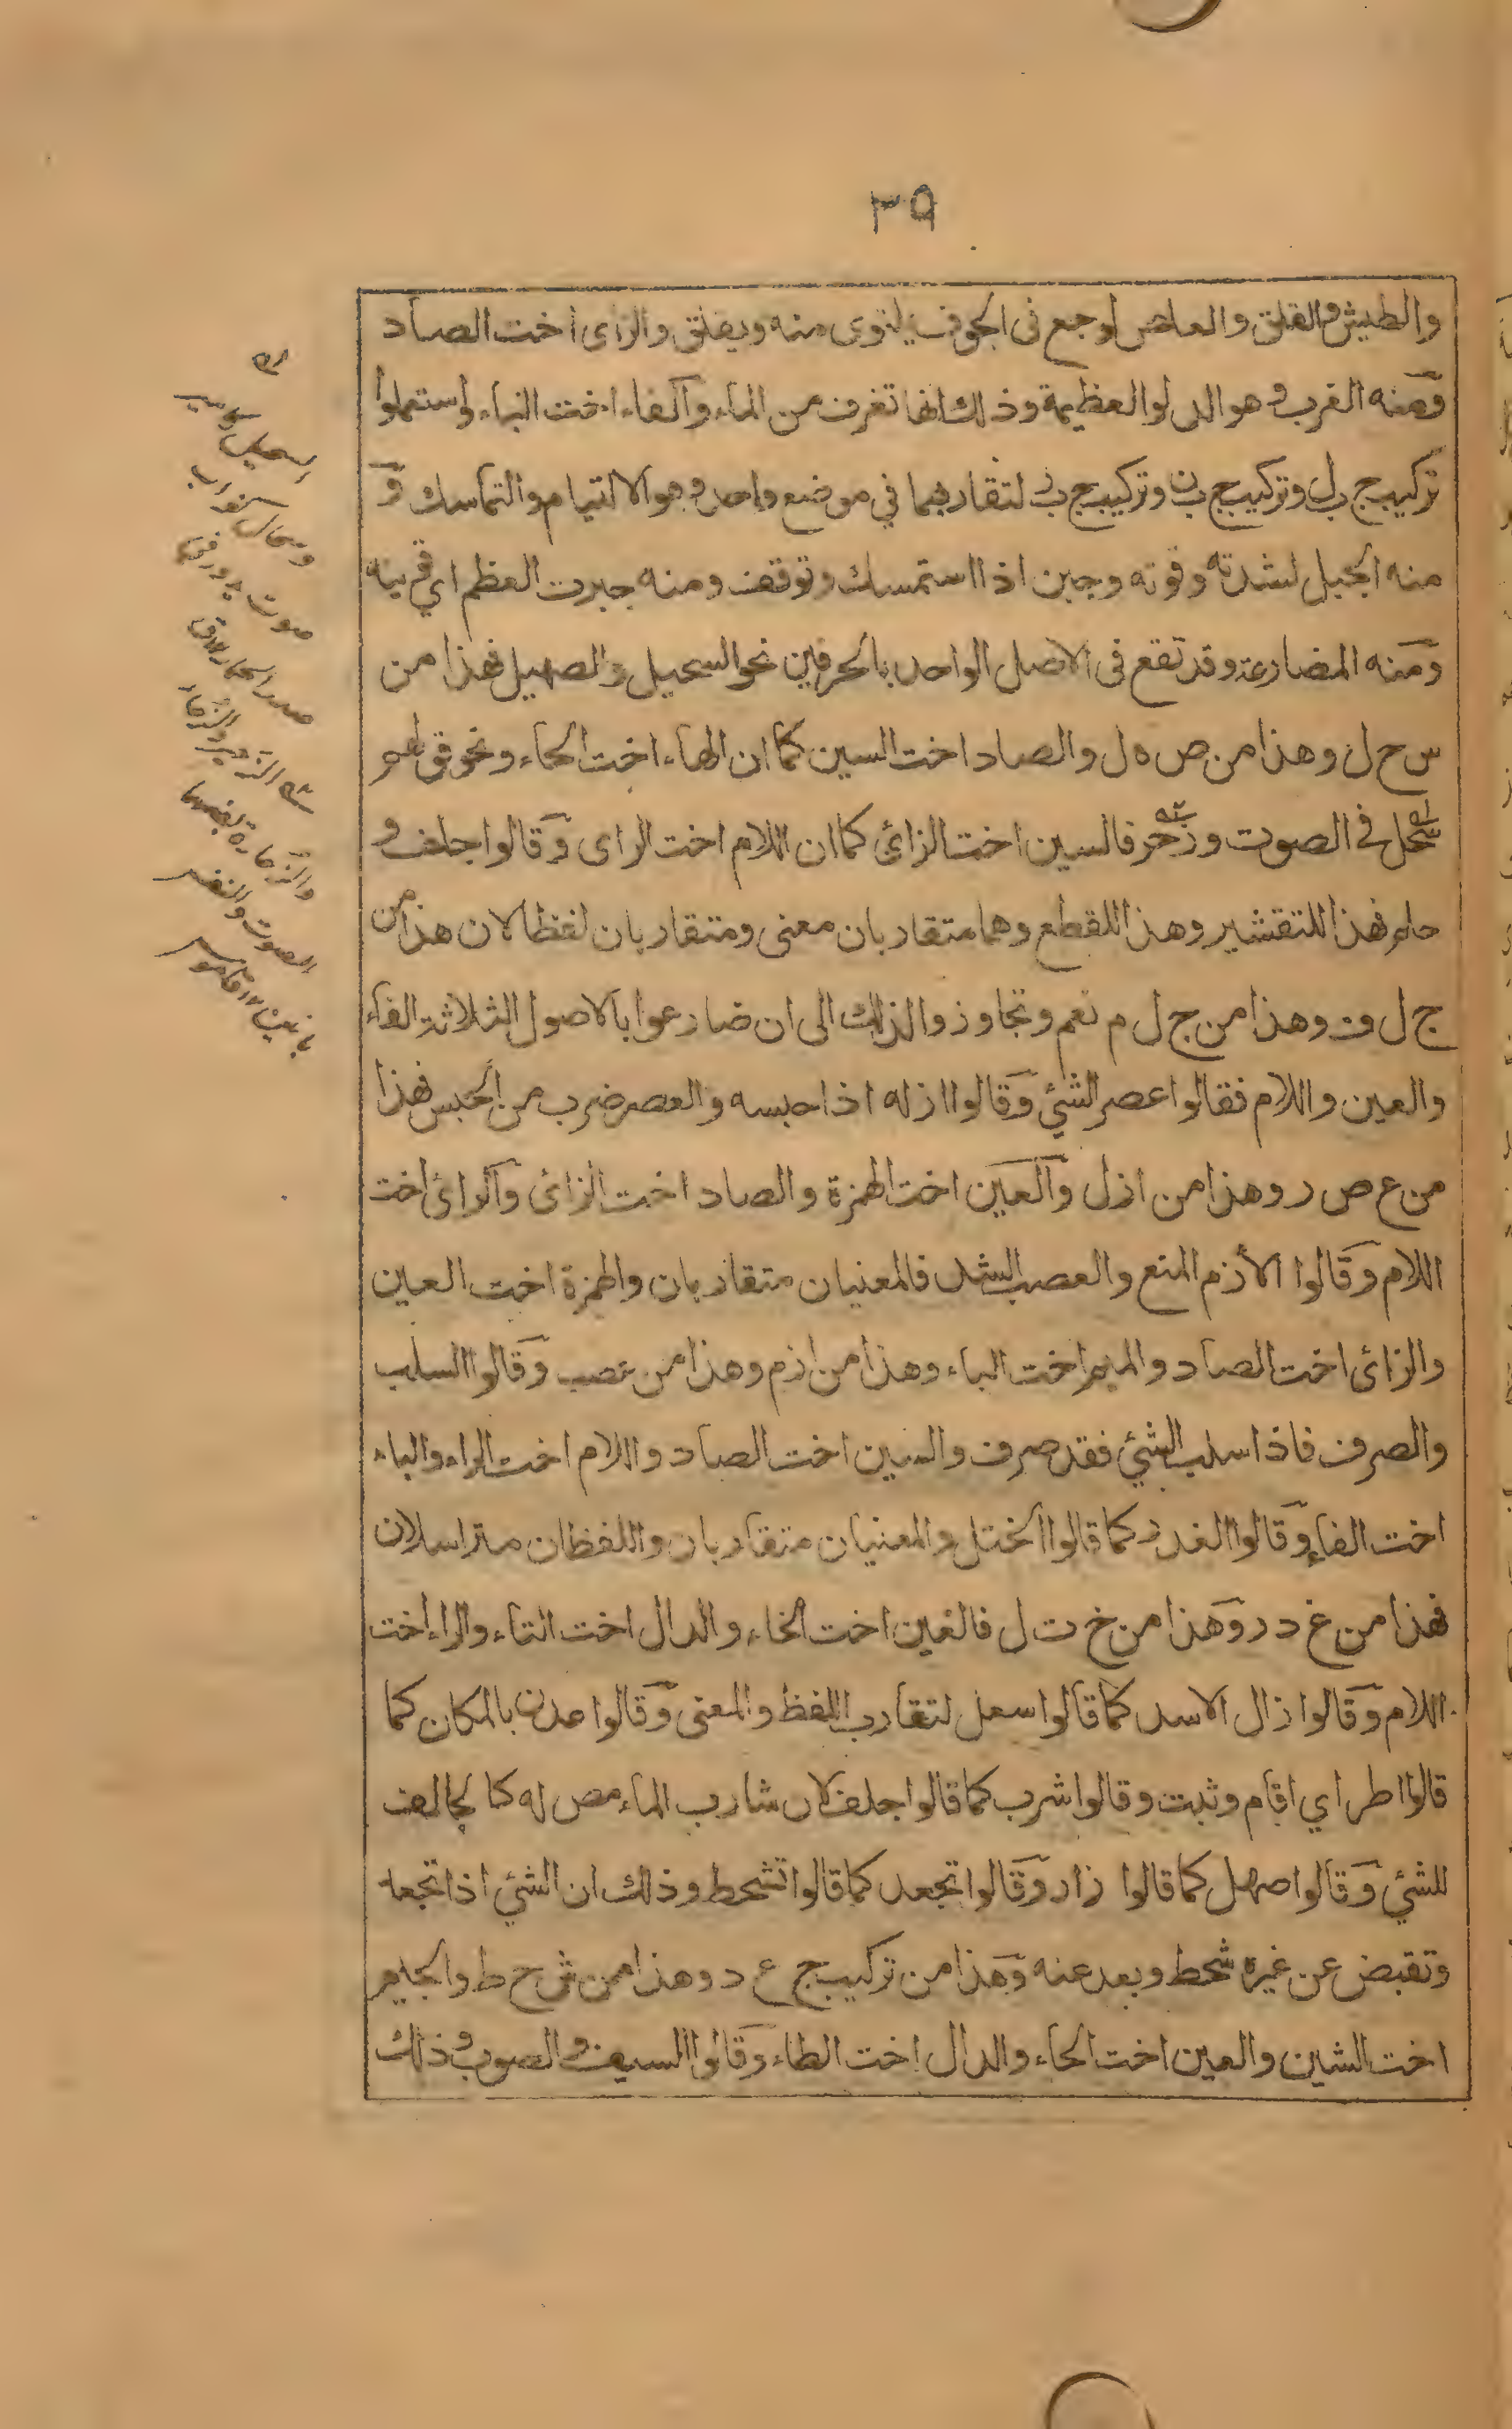 ٣٩
والطيش والقلق والعلص لوجع فى الجوف يلتوى منه ويقلق والزاى اخت الصاد
ومنه الغرب وهو الدلو العظيمة وذلك انها تغرف من الماء والفاء اخت الباء واستعملوا
تركيب ج ب ل وتركيب ج ب ن وتركيب ج ب ر لتقاربهما في موضع واحد وهو الالتيام والتماسك و
منه الجبل لشدته وقوته وجبن اذا استمسك وتوقف ومنه جبرت العظم اي قويته
ومنه المضارعة وقد تقع فى الاصل الواحد بالحرفين نحو السحيل والصهيل فهذا من
س ح ل وهذا من ص ه ل والصاد اخت السين كما ان الهاء اخت الحاء ونحو قولهم
سحل في الصوت وزحر فالسين اخت الزائ كما ان اللام اخت الراى وقالوا جلف و
جلم فهذا للتقشير وهذا للقطع وهما متقاربان معنى ومتقاربان لفظا لان هذا من
ج ل ف وهذا من ج ل م نعم وتجاوزوا لذلك الى ان ضارعوا بالاصول الثلاثة الفاء
والعين واللام فقالوا عصر الشئ وقالوا ازله اذا حبسه والعصر ضرب من الحبس فهذا
من ع ص ر وهذا من ازل والعين اخت الهمزة والصاد اخت الزائ والرائ اخت
اللام وقالوا الأزم المنع والعصب الشد فالمعنيان متقاربان والهمزة اخت العين
والزائ اخت الصاد والميم اخت الباء وهذا من ازم وهذا من عصب وقالوا السلب
والصرف فاذا سلب الشئ فقد صرف والسين اخت الصاد واللام اخت الراء والباء
اخت الفاء وقالوا الغدر كما قالوا الختل والمعنيان متقاربان واللفظان متراسلان
فهذا من غ د ر وهذا من خ ت ل فالغين اخت الخاء والدال اخت التاء والراء اخت
اللام وقالوا زال الاسد كما قالوا سعل لتقارب اللفظ والمعنى وقالوا عدن بالمكان كما
قالوا اطر اي اقام وثبت وقالوا شرب كما قالوا جلف لان شارب الماء مص له كالجالف
للشئ وقالوا صهل كما قالوا زار وقالوا تجعد كما قالوا تشحط وذلك ان الشئ اذا تجعد
وتقبض عن غيره شحط وبعد عنه وهذا من تركيب ج ع د وهذا من ش ح ط والجيم
اخت الشين والعين اخت الحاء والدال اخت الطاء وقالوا السيف والصوب وذلك
صوت
الصوت والنفس